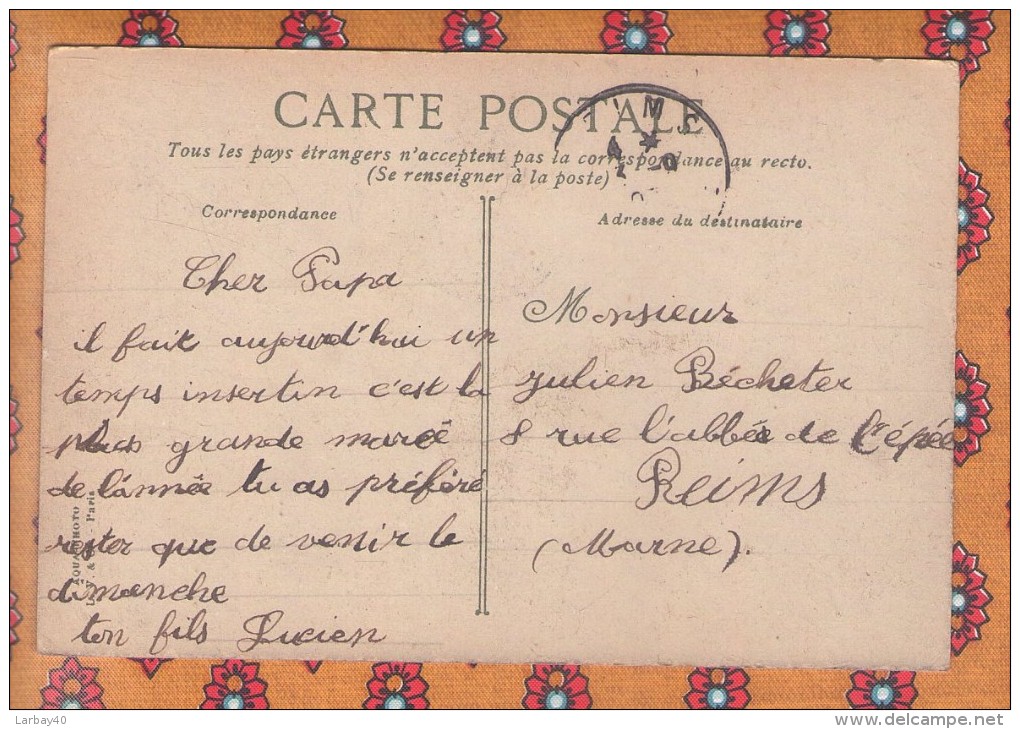 CARTE POSTALE
Tous les pays étrangers n'acceptent pas la correspondance au recto.
(Se renseigner à la poste)
Correspondance
Cher Papa
il fait aujourd'hui un
temps insertin c'est la
plus grande mareé
de l'anneé tu as préféré
rester que de venir le
dimanche
ton fils Lucien
AQUA-PHOTO
L. V. & - Paris
Adresse du destinataire
Monsieur
Julien Bécheter
8 rue l'abbée de l'épée
Reims
(Marne).
Larbay40
www.delcampe.net